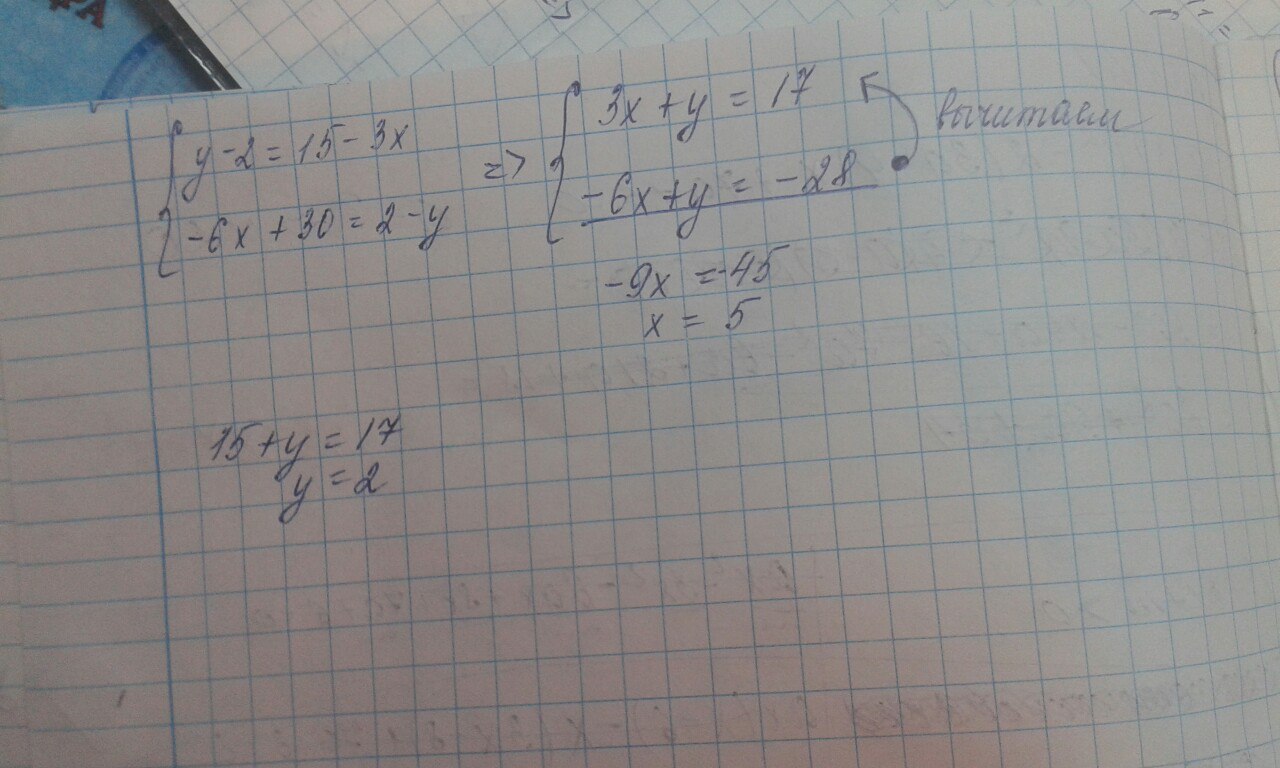 y-2=15-3x
-6x+30=2-y
=>
3x+y=17
-6x+y=-28
вычитаем
-9x=-45
x=5
15+y=17
y=2